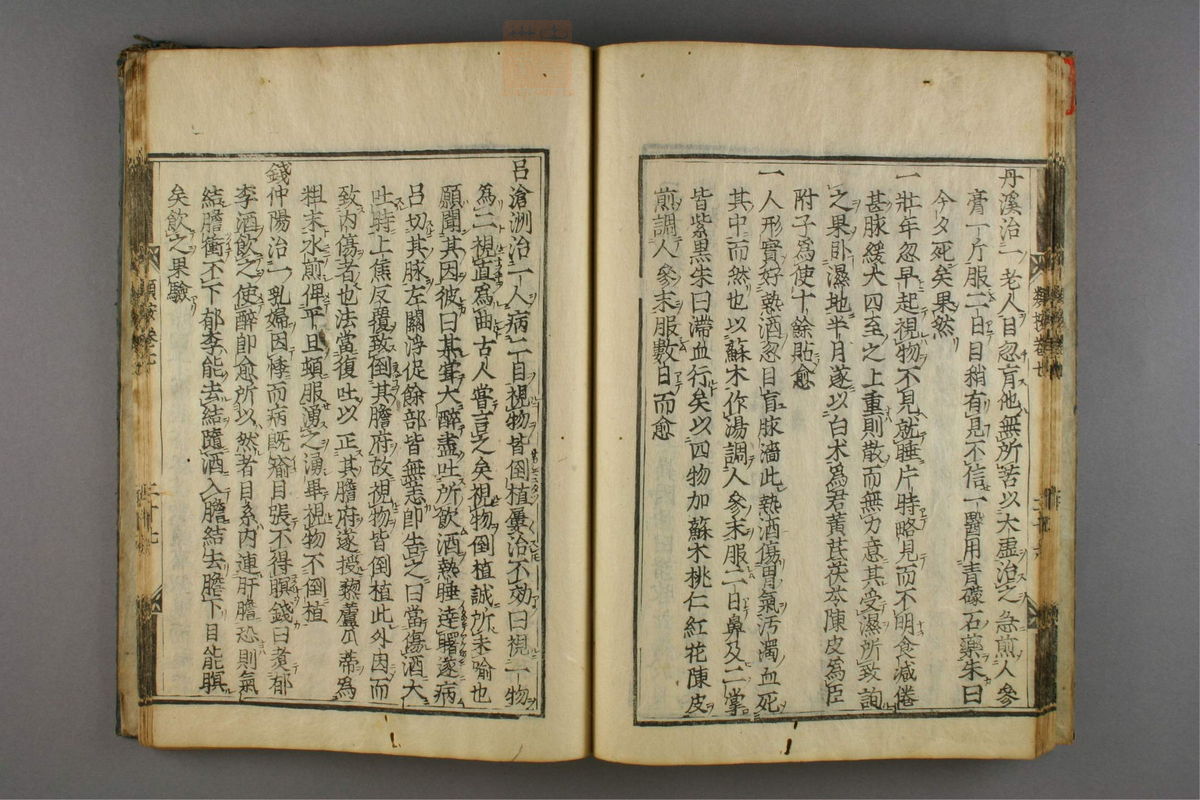 丹溪治一老人目忽盲他無所苦以大虛治之急煎人參
膏一斤服二日目稍有見不信一醫用青礞石藥朱曰
今夕死矣果然
一壯年忽早起視物不見就睡片時略見而不明食减倦
甚脉緩大四至之上重則散而無力意其受濕所致詢
之果卧濕地半月遂以白术為君黃茋茯苓陳皮為臣
附子為使十餘貼愈
一人形實好熱酒忽目盲脉濇此熱酒傷胃氣汚濁血死
其中而然也以蘇木作湯調人參末服二日鼻及二掌
皆紫黑朱曰滯血行矣以四物加蘇木桃仁紅花陳皮
煎調人參末服數日而愈
類按卷七
二十七
呂滄洲治一人病二目視物皆倒植屢治不効曰視一物
為二視直為曲古人嘗言之矣視物倒植誠所未喻也
願聞其因彼曰某嘗大醉盡吐所飲酒熱睡達曙遂病
呂切其脉左關浮促餘部皆無恙即告之曰當傷酒大
吐時上焦反覆致倒其膽府故視物皆倒植此不內外因而
致內傷者也法當復吐以正其膽府遂授藜蘆瓜蒂為
粗末水煎俾平旦頓服湧之湧畢視物不倒植
錢仲陽治一乳婦因悸而病既瘳目張不得瞑錢曰煮郁
李酒飲之使醉即愈所以然者目系內連肝膽恐則氣
結膽衡不下郁李能去結隨酒入膽結去膽下目能瞑
矣飲之果驗